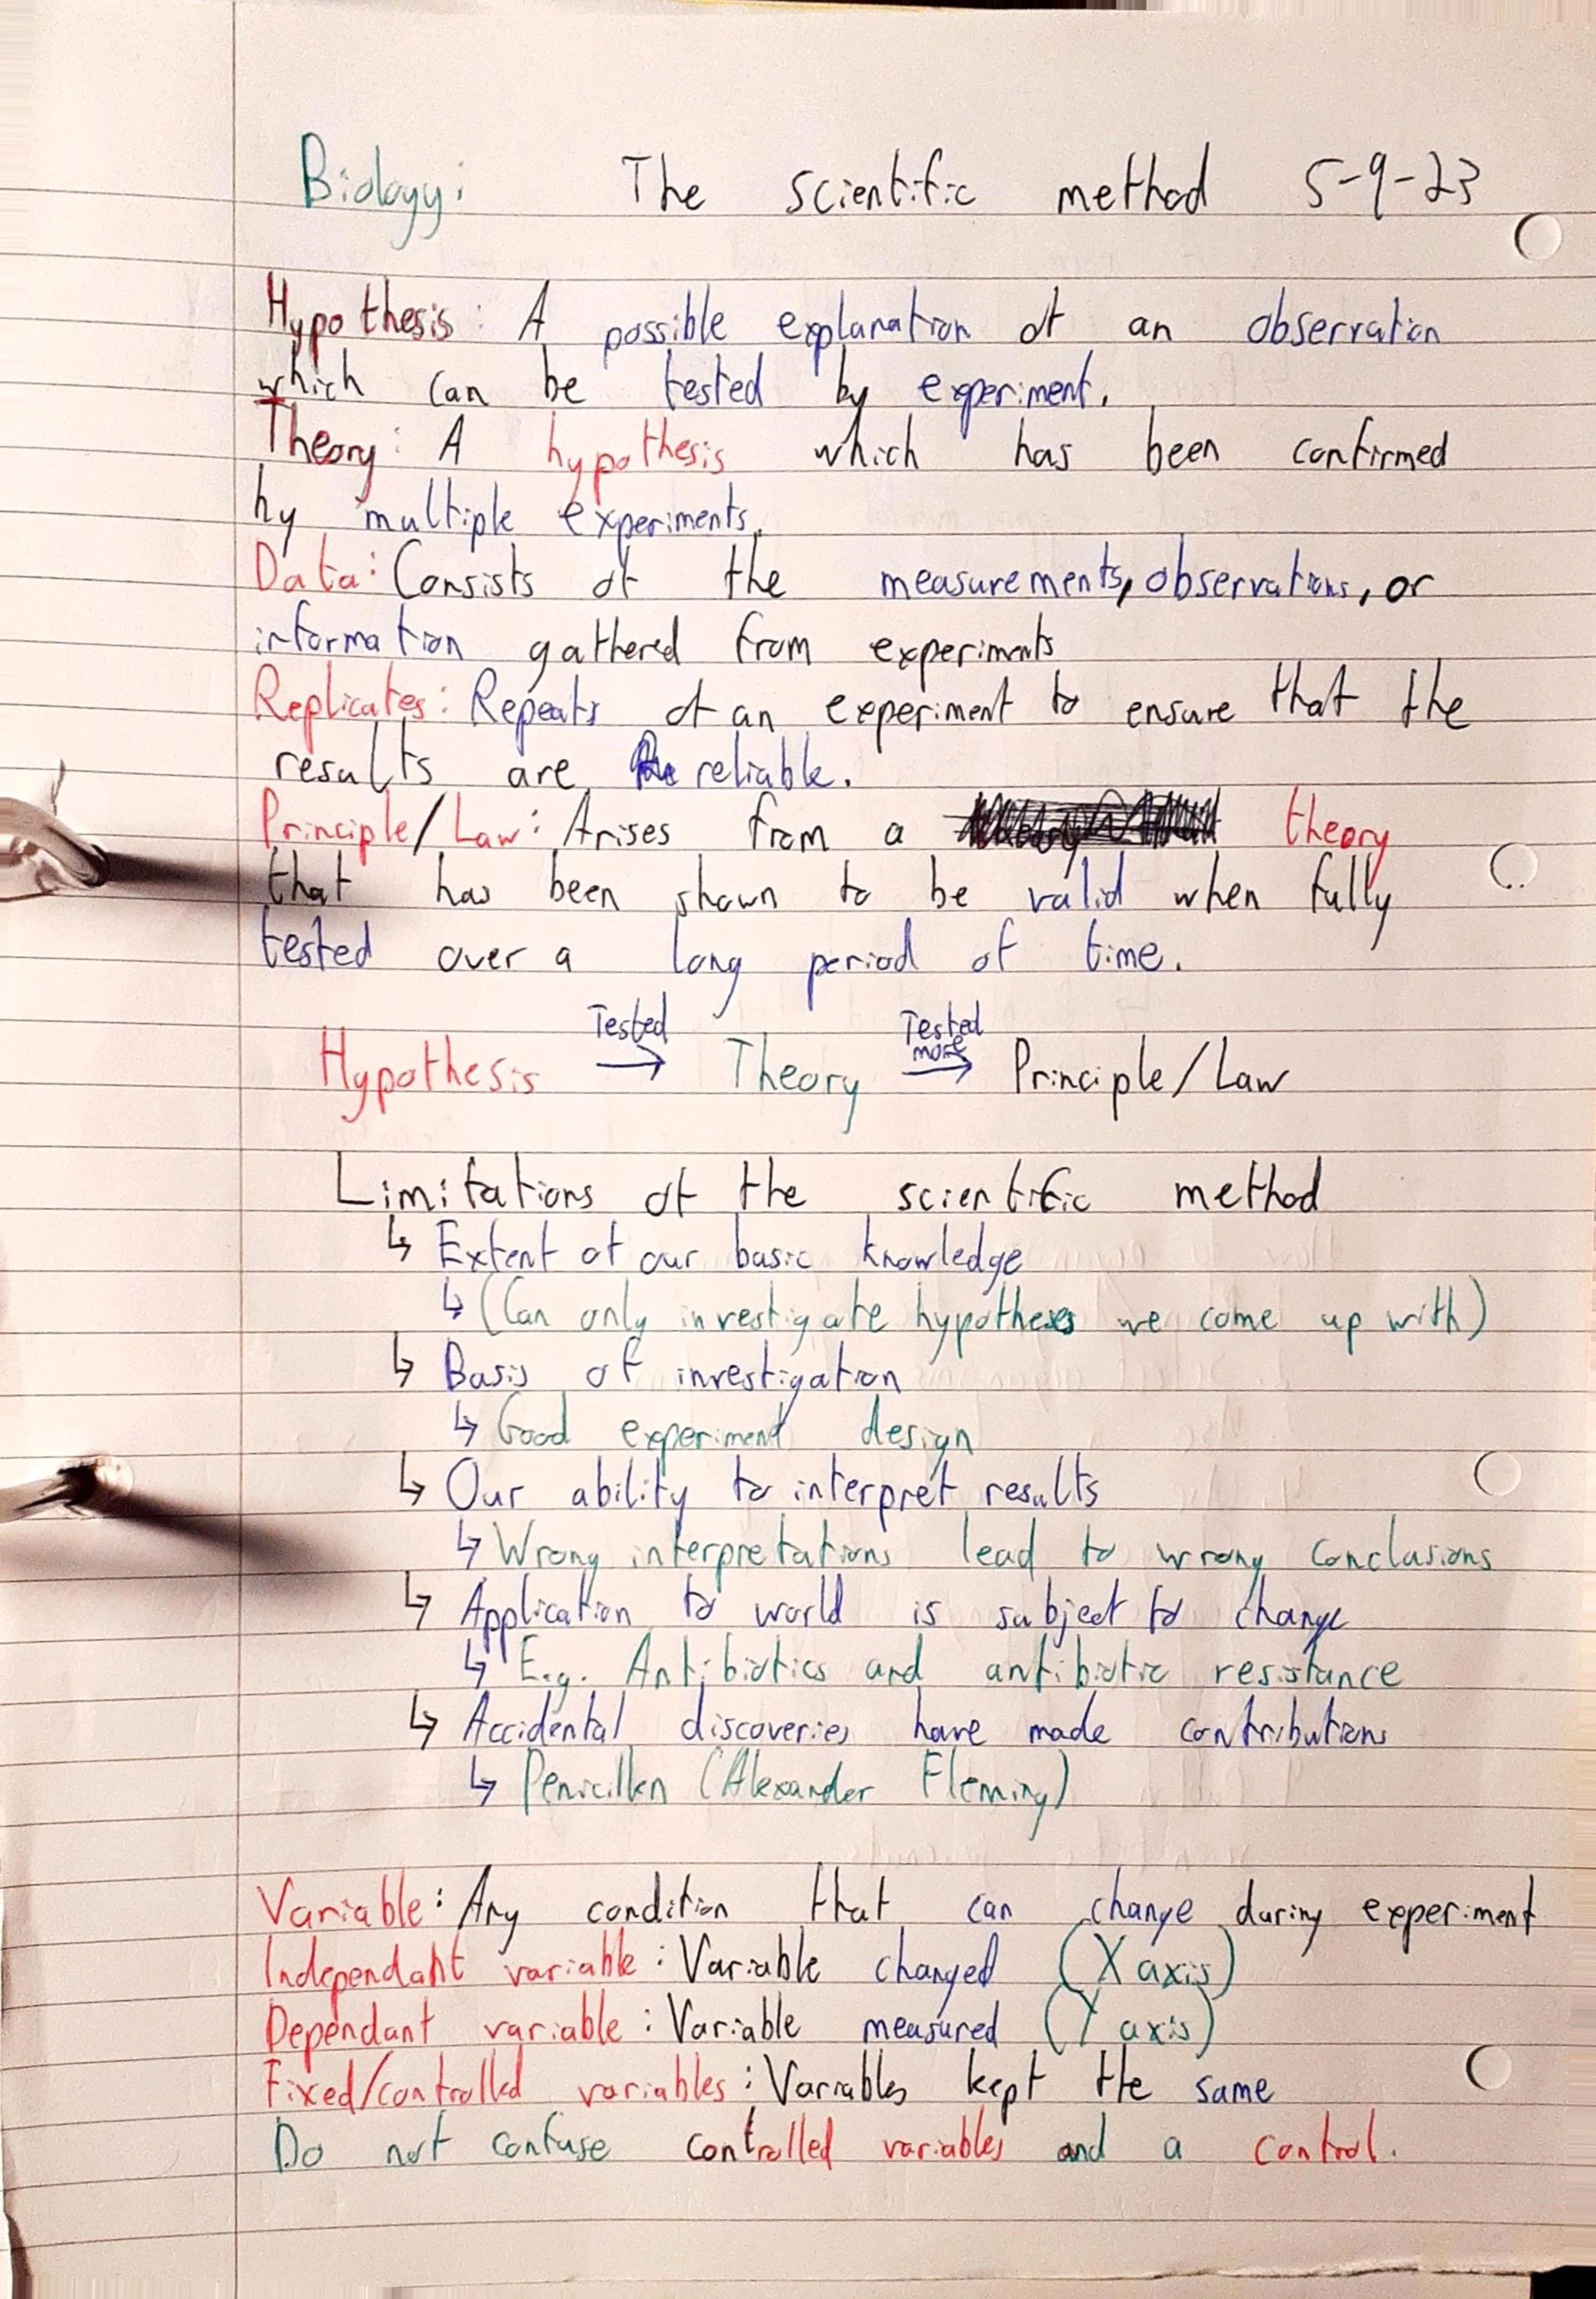 Biology: The scientific method 5-9-23
Hypothesis: A possible explanation of an observation
which can be tested by experiment.
Theory: A hypothesis which has been confirmed
by multiple experiments.
Data: Consists of the measurements, observations, or
information gathered from experiments
Replicates: Repeats of an experiment to ensure that the
results are reliable.
Principle/Law: Arises from a theory
that has been shown to be valid when fully
tested over a long period of time.
Hypothesis Tested → Theory Tested more → Principle/Law
Limitations of the scientific method
↳ Extent of our basic knowledge
↳ (Can only investigate hypotheses we come up with)
↳ Basis of investigation
↳ Good experiment design
↳ Our ability to interpret results
↳ Wrong interpretations lead to wrong conclusions
↳ Application to world is subject to change
↳ E.g. Antibiotics and antibiotic resistance
↳ Accidental discoveries have made contributions
↳ Penicillen (Alexander Fleming)
Variable: Any condition that can change during experiment
Independant variable: Variable changed (X axis)
Dependant variable: Variable measured (Y axis)
Fixed/controlled variables: Variables kept the same
Do not confuse controlled variables and a control.